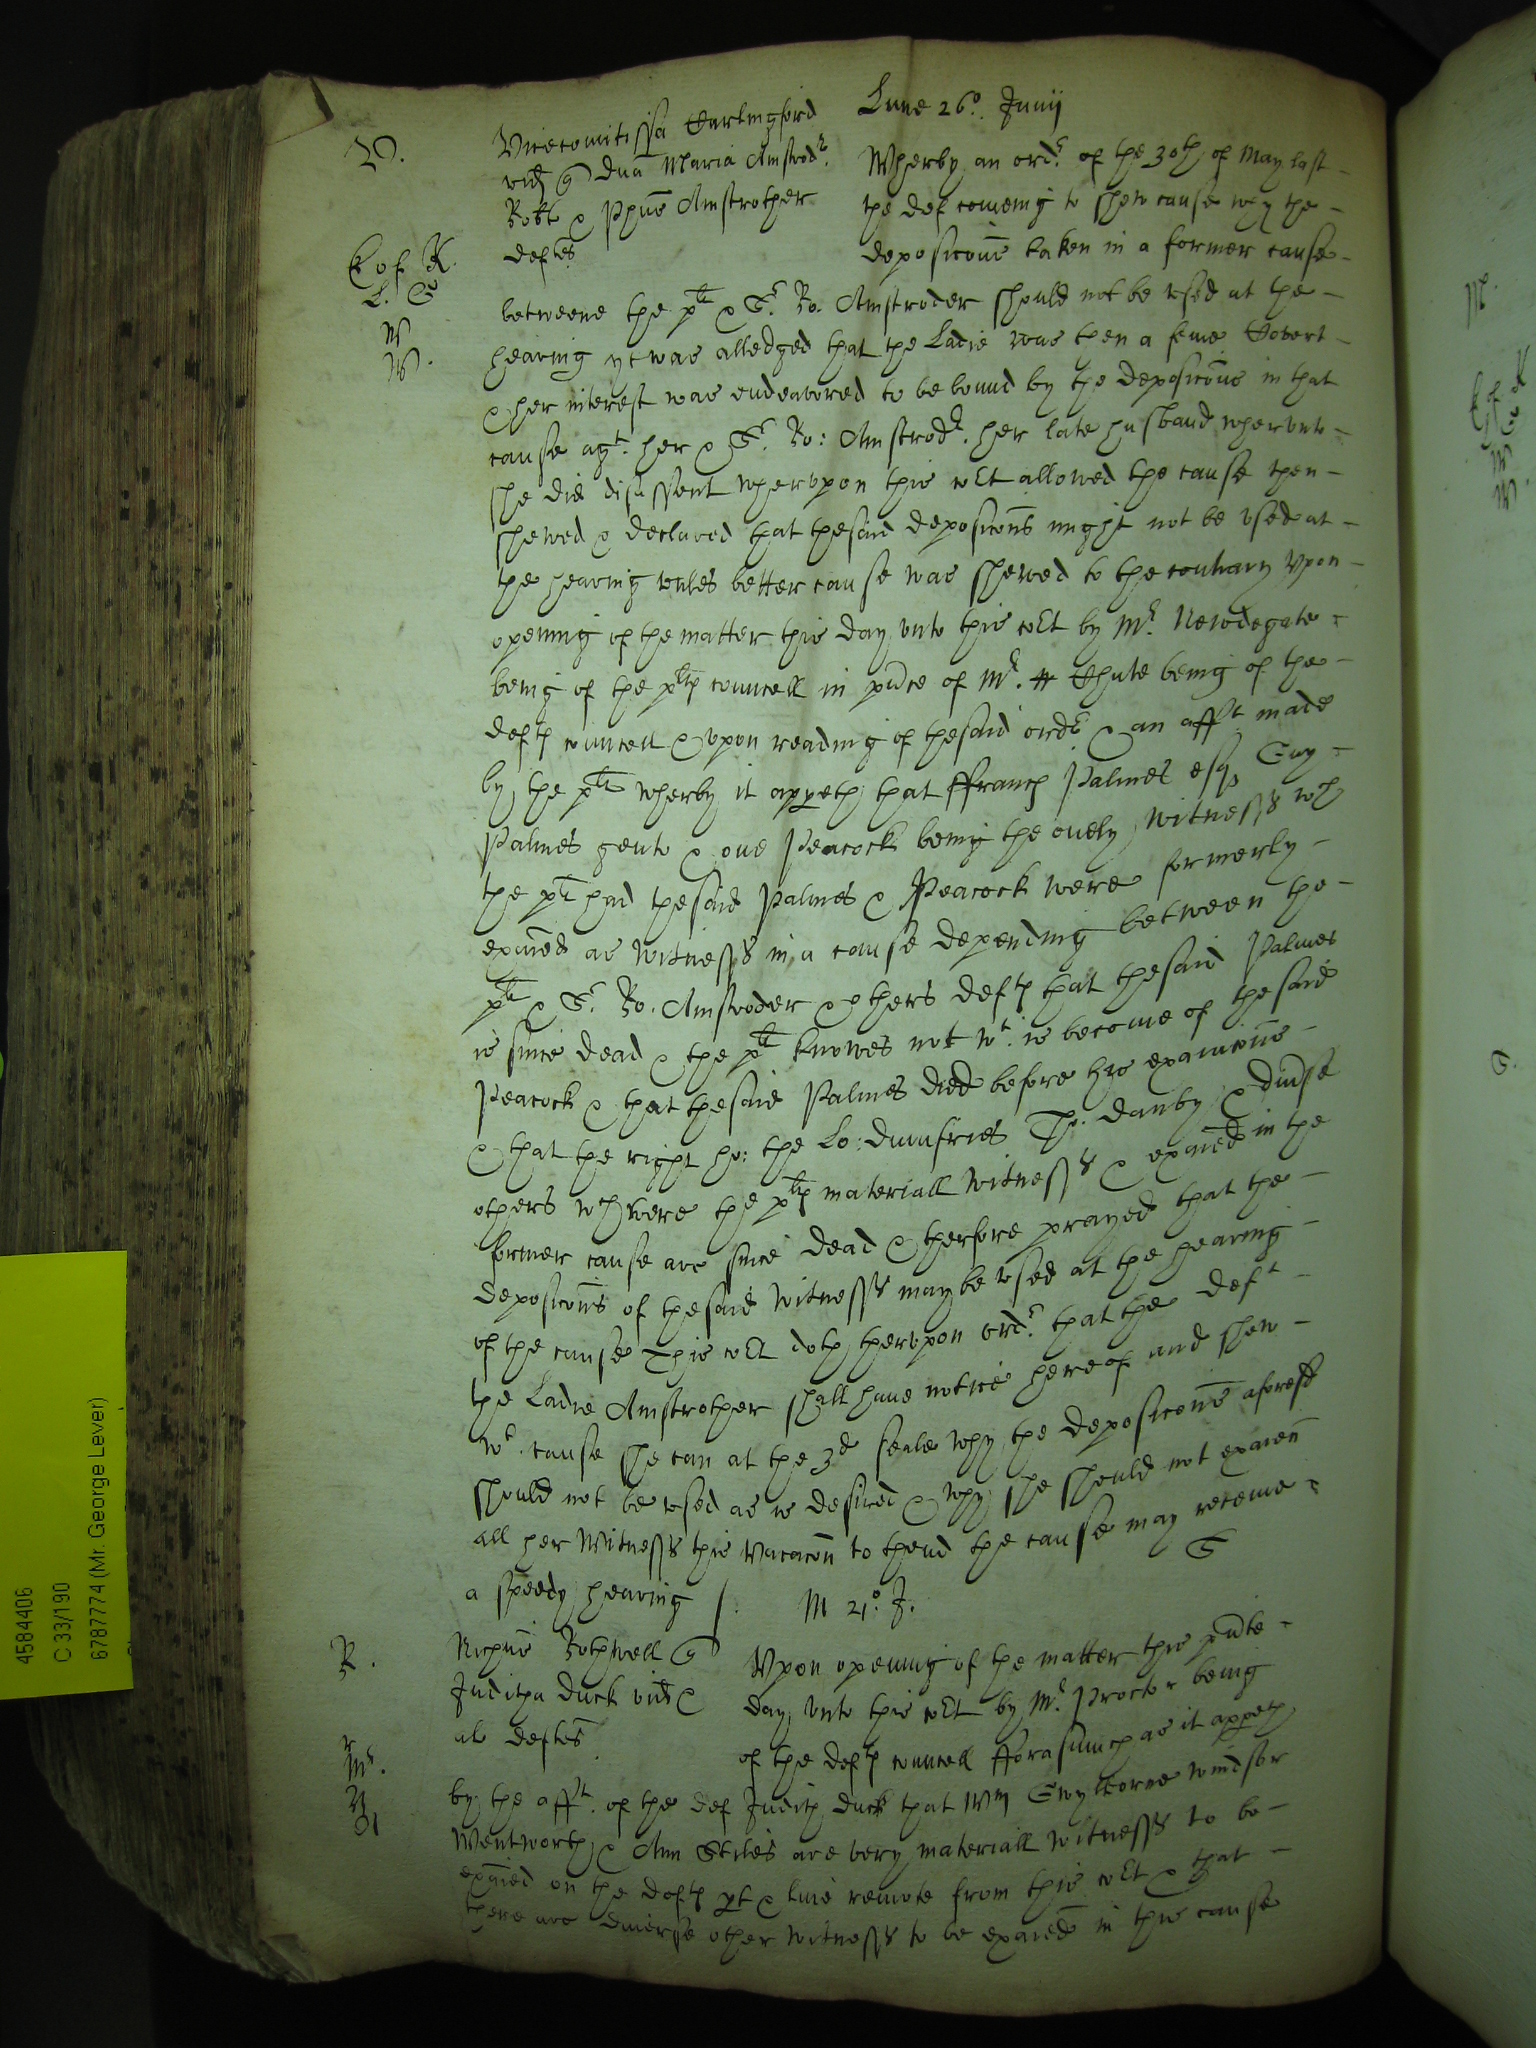 Lune 26o. Junij
V.
Vicecomitissa Carlingford
vid q Dna Maria Amstrodr.
Robt & Phus Amstrother
deftes
Wherby an ordr. of the 30th of May last
the def comeing to shew cause why the
deposicons taken in a former cause
E of K.
L. G
W
W.
betweene the plt & Sr. Ro. Amstroder should not be used at the
hearing yt was alledged that the Ladie was then a feme Covert
& her interest was endeavored to be bound by the deposicons in that
cause agt. her & Sr. Ro: Amstrodr. her late husband wherunto
she did disassent wherupon this Cot allowed the cause then
shewed & declared that thesaid deposicons might not be used at
the hearing unles better cause was shewed to the contrary Upon
opening of the matter this day unto this Cot by Mr. Newdegate
being of the plts councell in pnce of Mr. Chute being of the
defts councell & upon reading of thesaid ordr & an afft made
by the plt wherby it appeth that ffranc Palmes esq Guy
Palmes gent & one Peacock being the onely witnesses wch
the plt had thesaid Palmes & Peacock were formerly
exaied as witnesses in a cause depending between the
plt & Sr. Ro. Amstroder & others defts that thesaid Palmes
is since dead & the plt knowes not wt. is become of thesaid
Peacock & that thesaid Palmes died before his examicons
& that the right ho: the Lo: Dumfries Th. Danby & diverse
others wch were the plts materiall witnesses & exaied in the
former cause are since dead & therfore prayed that the
deposicons of thesaid witnesses may be used at the hearing
of the cause This Cot doth therupon ordr. that the deft
the Ladie Amstrother shall have notice hereof and shew
wt. cause she can at the 3d seale why the deposicons aforesd
should not be used as is desired & why she should not exaien
all her witnesses this Vacacon to thend the cause may receive
a speedy hearing
G
M 21o. J.
R.
Nichus Rothwell q
Juditha Duck vid &
al deftes
Upon opening of the matter this pnte
day unto this Cot by Mr. Proctor being
of the defts councell fforasmuch as it appeth
r
Mr.
by the afft. of the def Judith Duck that Wm Gwyltorne Windsor
Wentworth & Ann Stiles are very materiall witnesses to be
exaied on the defts pt & live remote from this Cot & that
there are diverse other witnesses to be exaied in this cause
4584406
C 33/190
6787774 (Mr. George Lever)